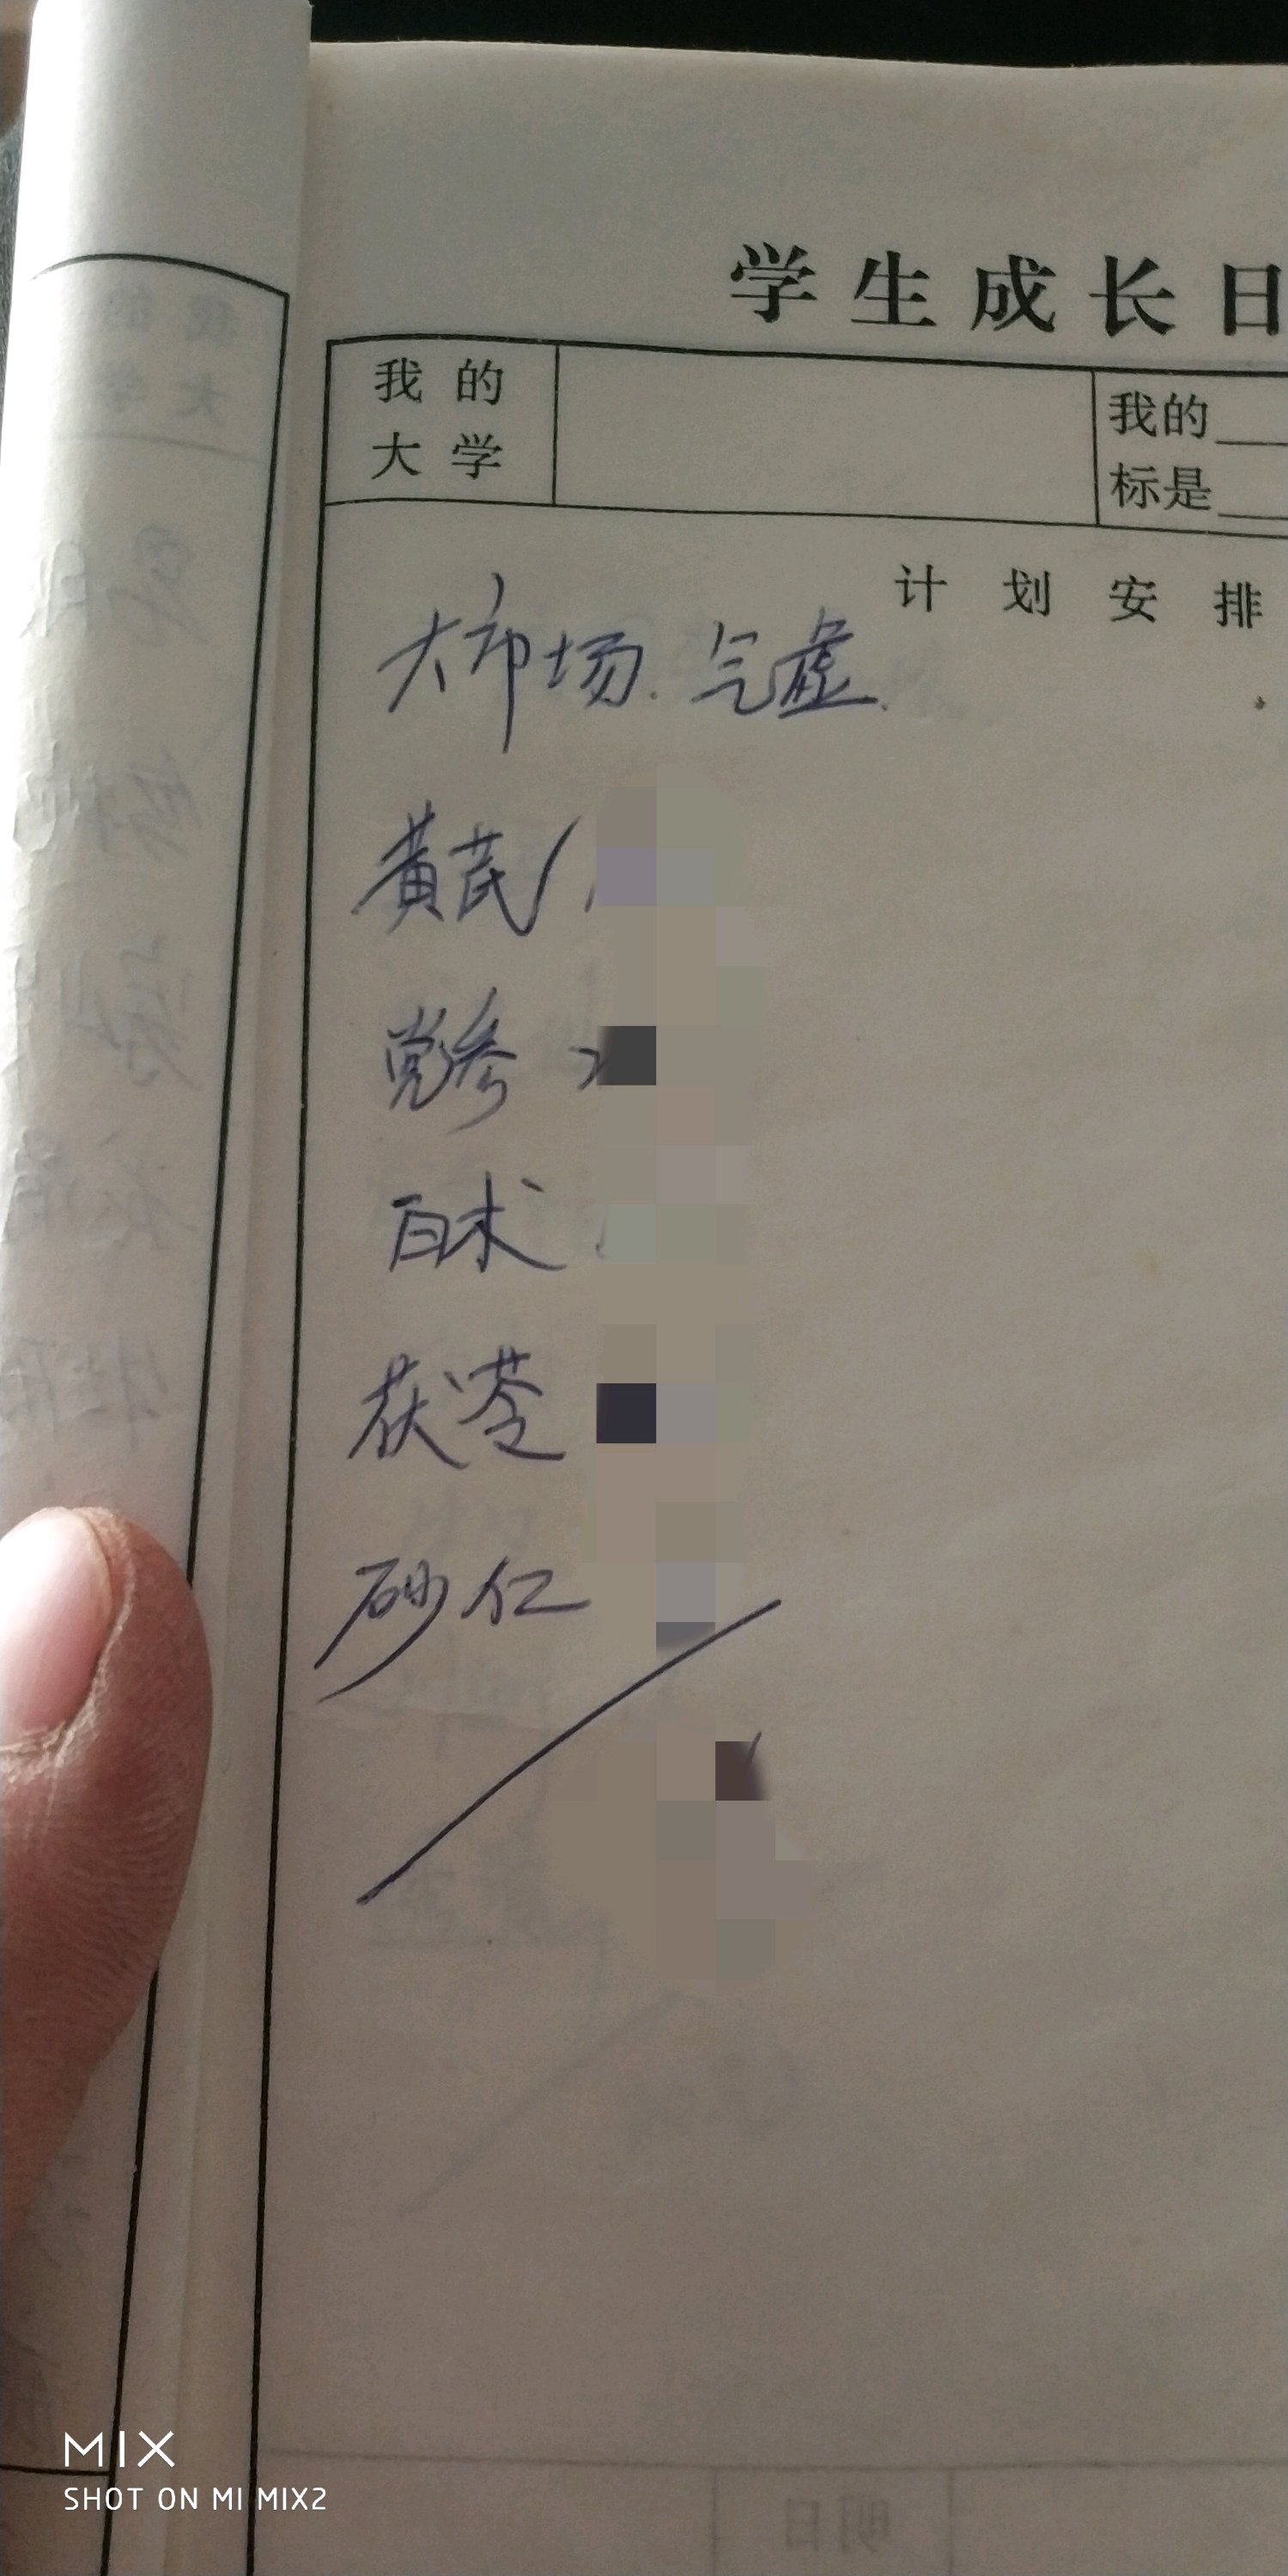 学生成长日
我的大学
我的
标是
计划安排
大市场.气虚.
黄芪
党参
白术
茯苓
砂仁
MIX
SHOT ON MI MIX2